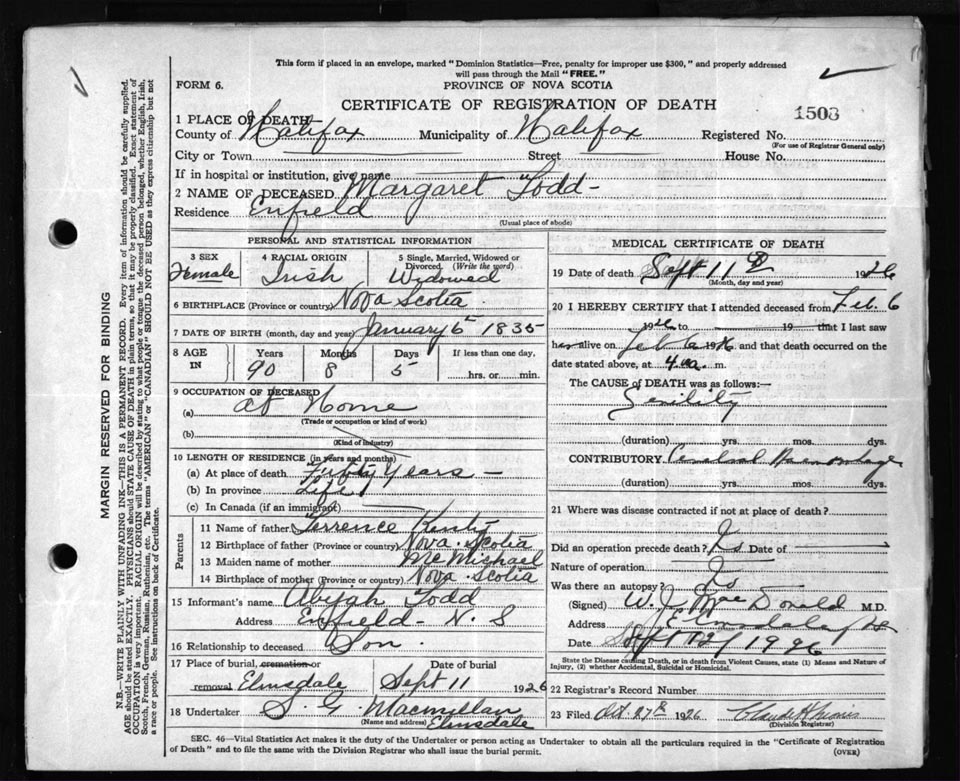 This form if placed in an envelope, marked "Dominion Statistics—Free, penalty for improper use $300," and properly addressed
will pass through the Mail "FREE."
FORM 6.
PROVINCE OF NOVA SCOTIA
CERTIFICATE OF REGISTRATION OF DEATH
1503
1 PLACE OF DEATH
County of Halifax Municipality of Halifax Registered No.
(For use of Registrar General only)
City or Town Street House No.
If in hospital or institution, give name
2 NAME OF DECEASED Margaret Todd
Residence Enfield
(Usual place of abode)
PERSONAL AND STATISTICAL INFORMATION
3 SEX 4 RACIAL ORIGIN 5 Single, Married, Widowed or
Divorced. (Write the word)
Female Irish Widowed
6 BIRTHPLACE (Province or country) Nova Scotia
7 DATE OF BIRTH (month, day and year) January 6 1835
8 AGE IN Years Months Days If less than one day,
90 8 5 hrs. or min.
9 OCCUPATION OF DECEASED
(a) At Home
(Trade or occupation or kind of work)
(b)
(Kind of industry)
10 LENGTH OF RESIDENCE (in years and months)
(a) At place of death Fifty Years
(b) In province Life
(c) In Canada (if an immigrant)
Parents
11 Name of father Terrence
12 Birthplace of father (Province or country) Nova Scotia
13 Maiden name of mother
14 Birthplace of mother (Province or country) Nova Scotia
15 Informant's name Abijah Todd
Address Enfield - N. S
16 Relationship to deceased Son.
17 Place of burial, cremation or Date of burial
removal Elmsdale Sept 11 1926
18 Undertaker S. G. Macmillan
(Name and address) Elmsdale
MEDICAL CERTIFICATE OF DEATH
19 Date of death Sept 11 1926
(Month, day and year)
20 I HEREBY CERTIFY that I attended deceased from Feb. 6
1926 to 19 that I last saw
her alive on Feb 6 1926 and that death occurred on the
date stated above, at 4 a. m.
The CAUSE of DEATH was as follows:—
Senility
(duration) yrs. mos. dys.
CONTRIBUTORY Cerebral Haemorrhage
(duration) yrs. mos. dys.
21 Where was disease contracted if not at place of death?
Did an operation precede death? Date of
Nature of operation
Was there an autopsy?
(Signed) W. J. MacDonald M.D.
Address Elmsdale
Date Sept 12 / 1926
State the Disease causing Death, or in death from Violent Causes, state (1) Means and Nature of
Injury, (2) whether Accidental, Suicidal or Homicidal.
22 Registrar's Record Number
23 Filed Oct 27 1926
(Division Registrar)
SEC. 46—Vital Statistics Act makes it the duty of the Undertaker or person acting as Undertaker to obtain all the particulars required in the "Certificate of Registration
of Death" and to file the same with the Division Registrar who shall issue the burial permit.
(OVER)
MARGIN RESERVED FOR BINDING
N.B.—WRITE PLAINLY WITH UNFADING INK—THIS IS A PERMANENT RECORD. Every item of information should be carefully supplied.
AGE should be stated EXACTLY. PHYSICIANS should STATE CAUSE OF DEATH in plain terms, so that it may be properly classified. Exact statement of
OCCUPATION is very important. RACIAL ORIGIN will be described by stating to what people or race the deceased person belonged, whether English, Irish,
Scotch, French, German, Russian, Ruthenian, etc. The terms "AMERICAN" or "CANADIAN" SHOULD NOT BE USED as they express citizenship but not
a race or people. See instructions on back of Certificate.